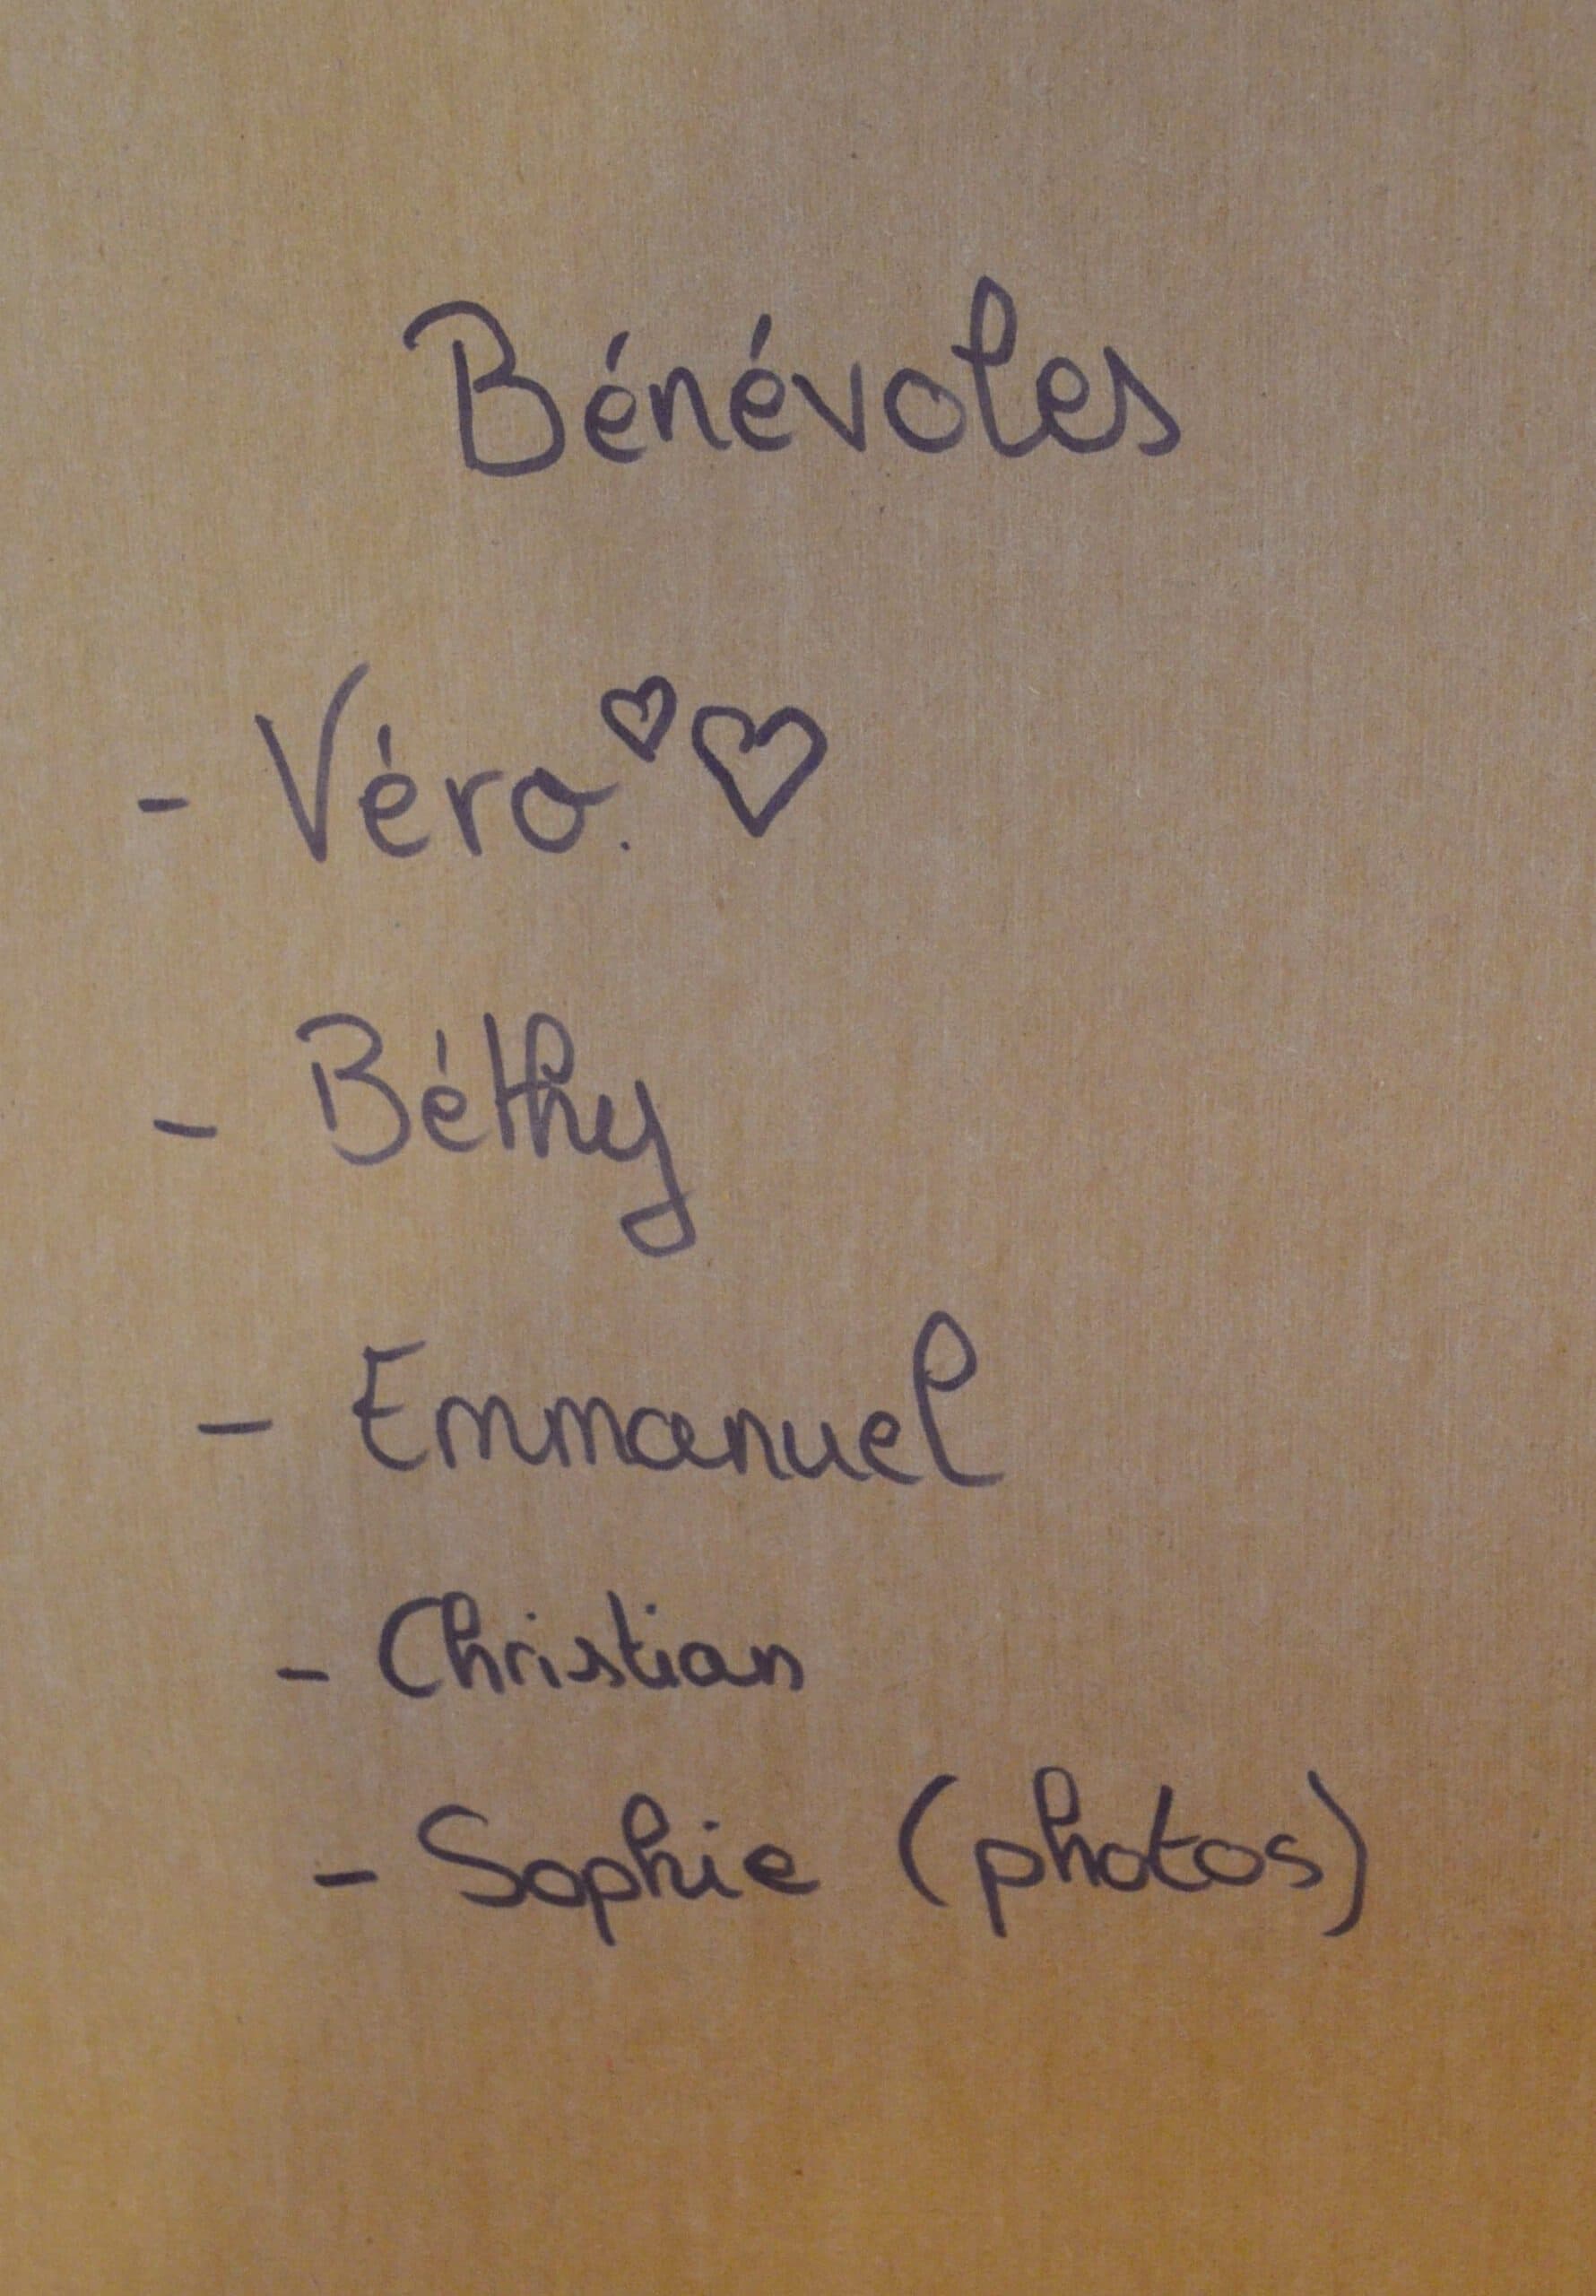 Bénévoles
- Véro. ♡♡
- Béthy
- Emmanuel
- Christian
- Sophie (photos)